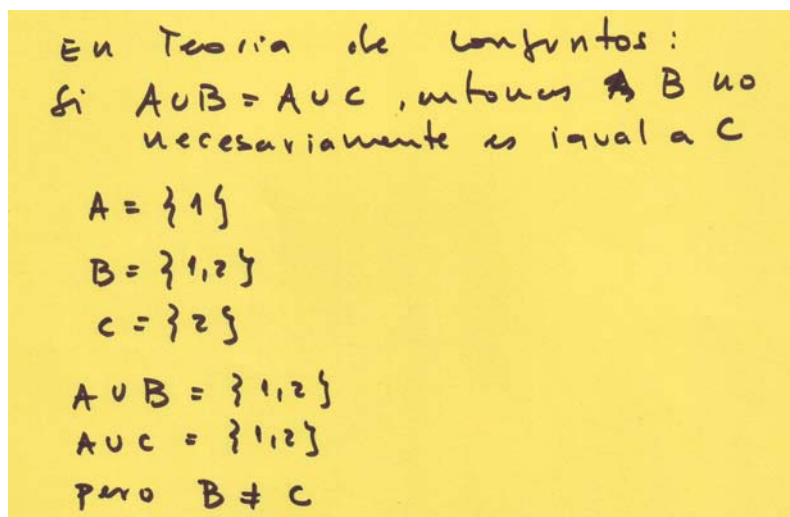 En Teoria de conjuntos:
Si A∪B = A∪C, entonces B no
necesariamente es igual a C
A = {1}
B = {1,2}
C = {2}
A ∪ B = {1,2}
A ∪ C = {1,2}
pero B ≠ C